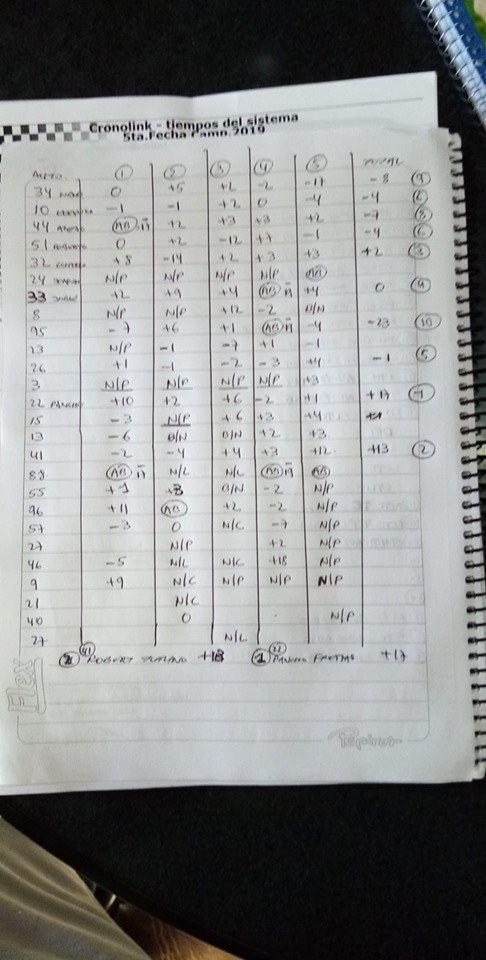 Cronolink - tiempos del sistema
5ta.Fecha Camp.2019
AUTO. ① ② ③ ④ ⑤
34 0 +5 +2 -2 -17 -8
10 -1 -1 +2 0 -4 -4 ⑥
44 AB +2 +3 +3 +2 -7 ⑧
51 0 +2 -12 +7 -1 -4 ⑥
32 +8 -14 +2 +3 +3 +2 ③
24 N/P N/P N/P N/P AB
33 +2 +9 +4 AB +4 0 ④
8 N/P N/P +12 -2 B/N
95 -7 +6 +1 AB -4 -23 ⑩
23 N/P -1 -7 +1 -1
26 +1 -1 -2 -3 +4 -1 ⑤
3 N/P N/P N/P N/P +3
22 PANCHO +10 +2 +6 -2 +1 +17 ①
15 -3 N/P +6 +3 +4
13 -6 B/N B/N +2 +3
41 -2 -4 +4 +3 +12 +13 ②
88 AB N/C N/C AB AB
55 +1 +3 B/N -2 N/P
96 +11 AB +2 -2 N/P
57 -3 0 N/C -7 N/P
27 N/P +2 N/P
46 -5 N/C N/C +18 N/P
9 +9 N/C N/P N/P N/P
21 N/C
40 0 N/P
27 N/C
② 41 ROBERT +13 ① 22 PANCHO FREITAS +17
Flex
Papiros